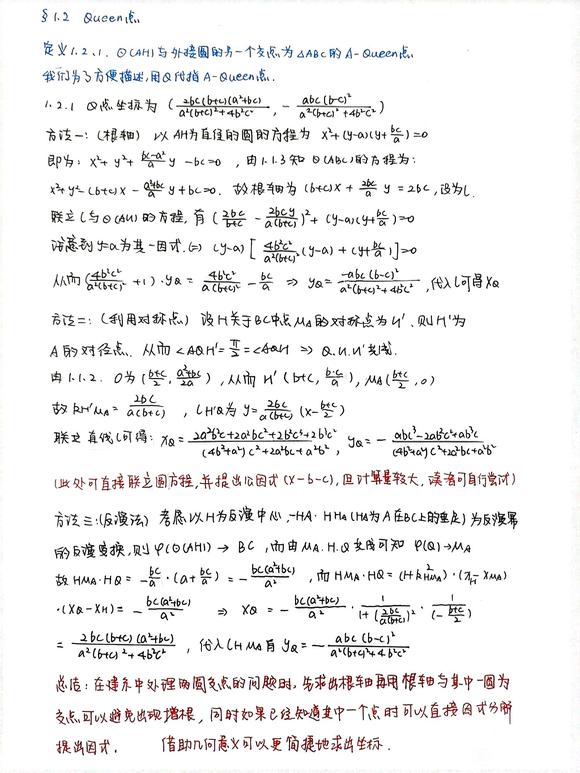 §1.2 Queen点
定义1.2.1. ⊙(AH)与外接圆的另一个交点为△ABC的A-Queen点
我们为了方便描述,用Q代指A-Queen点.
1.2.1 Q点坐标为 (2bc(b+c)(a²+bc)/(a²(b+c)²+4b²c²), -abc(b-c)²/(a²(b+c)²+4b²c²))
方法一:(根轴) 以AH为直径的圆的方程为 x²+(y-a)(y+bc/a)=0
即为: x²+y²+(bc-a²)/a y-bc=0, 由1.1.3知⊙(ABC)的方程为:
x²+y²-(b+c)x-(a²+bc)/a y+bc=0. 故根轴为 (b+c)x+2bc/a y=2bc, 设为l.
联立l与⊙(AH)的方程, 有 (2bc/(b+c)-2bcy/(a(b+c)))²+(y-a)(y+bc/a)=0
注意到y=a为其一因式.⇔ (y-a)[4b²c²/(a²(b+c)²)(y-a)+(y+bc/a)]=0
从而 (4b²c²/(a²(b+c)²)+1)·yQ=4b²c²/(a(b+c)²)-bc/a ⇒ yQ=-abc(b-c)²/(a²(b+c)²+4b²c²), 代入l可得xQ
方法二:(利用对称点) 设H关于BC中点MA的对称点为H'. 则H'为
A的对径点. 从而∠AQH'=π/2=∠AQH ⇒ Q.H.H'共线.
由1.1.2. O为((b+c)/2, (a²+bc)/2a), 从而H'(b+c, b·c/a), MA((b+c)/2, 0)
故kH'MA=2bc/(a(b+c)), lH'Q为y=2bc/(a(b+c))(x-(b+c)/2)
联立直线l可得: xQ=(2a²b²c+2a²bc²+2b²c³+2b³c²)/((4b²+a²)c²+2a²bc+a²b²), yQ=-(abc³-2ab²c²+ab³c)/((4b²+a²)c²+2a²bc+a²b²)
(此处可直接联立圆方程,并提出公因式(x-b-c),但计算量较大,读者可自行尝试)
方法三:(反演法) 考虑以H为反演中心,-HA·HHA(HA为A在BC上的垂足)为反演幂
的反演变换,则φ(⊙(AH))→BC,而由MA.H.Q共线可知 φ(Q)→MA
故HMA·HQ=-bc/a·(a+bc/a)=-bc(a²+bc)/a², 而HMA·HQ=(1+k²HMA)·(xH-xMA)
·(xQ-xH)=-bc(a²+bc)/a² ⇒ xQ=-bc(a²+bc)/a²·1/(1+(2bc/(a(b+c)))²)·1/(-(b+c)/2)
=2bc(b+c)(a²+bc)/(a²(b+c)²+4b²c²), 代入lHMA有yQ=-abc(b-c)²/(a²(b+c)²+4b²c²)
总结:在建系中处理两圆交点的问题时,先求出根轴再用根轴与其中一圆为
交点可以避免出现增根,同时如果已经知道其中一个点时可以直接因式分解
提出因式. 借助几何意义可以更简捷地求出坐标.